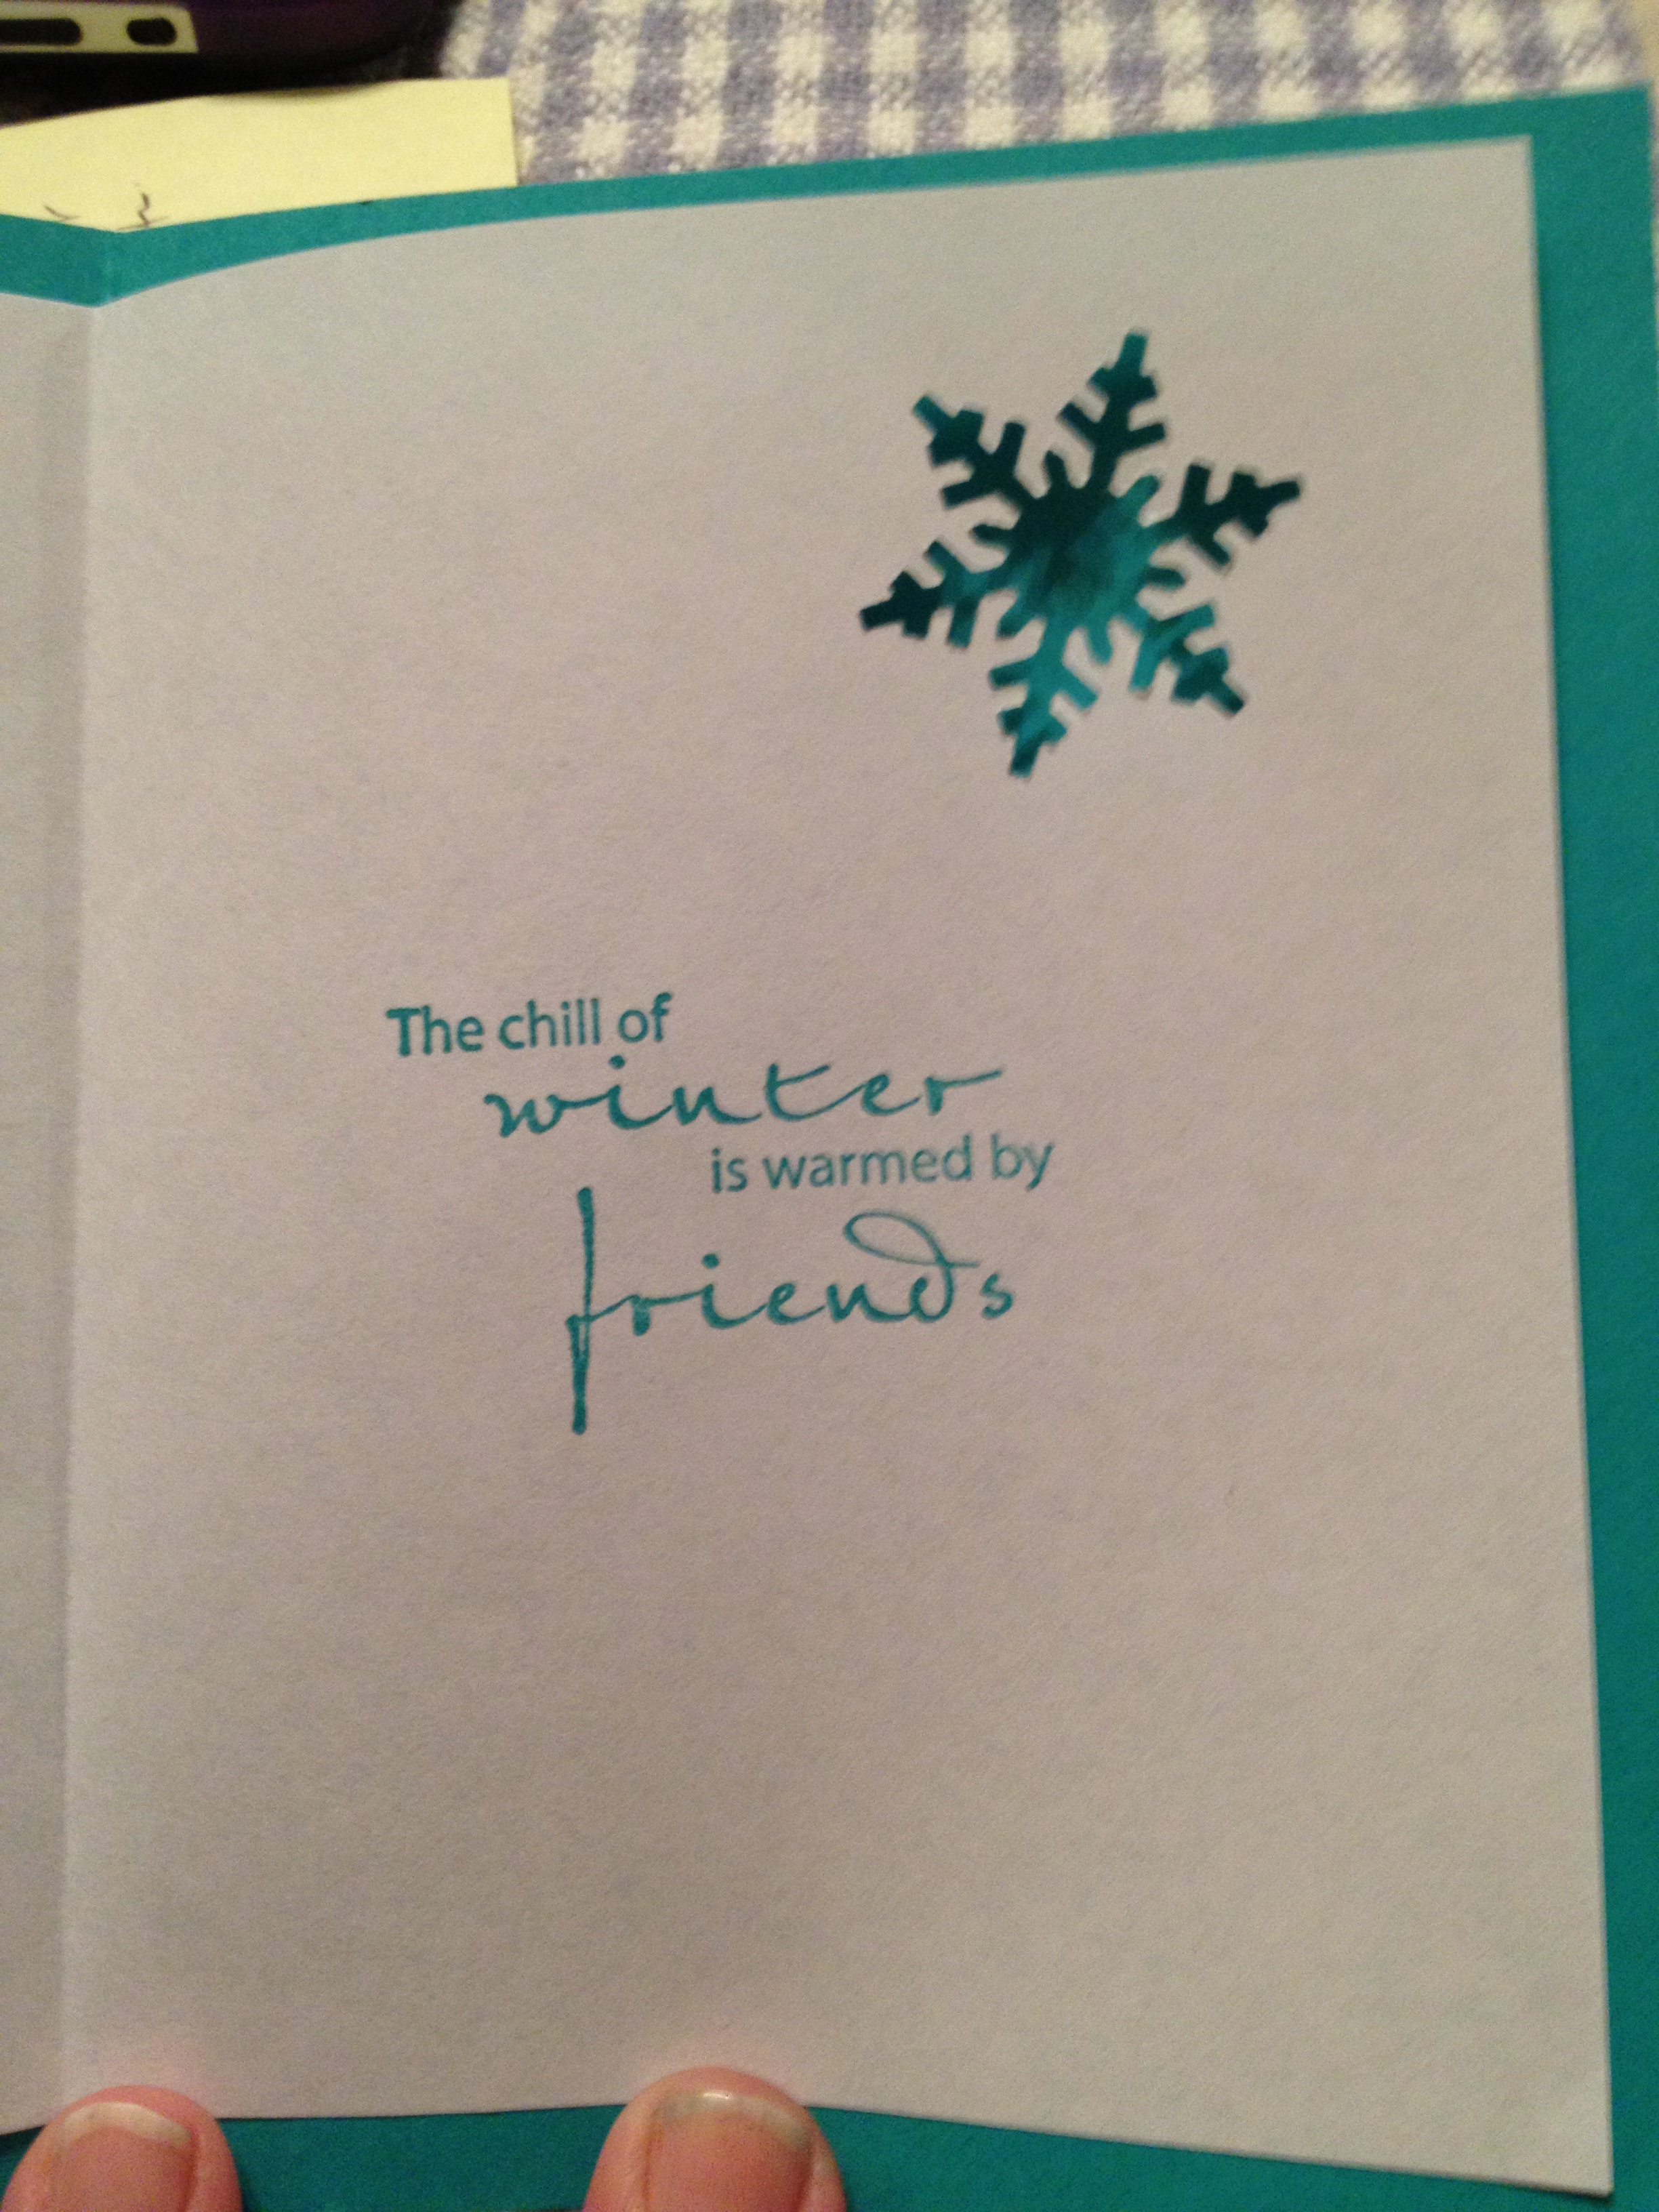 The chill of
winter
is warmed by
friends